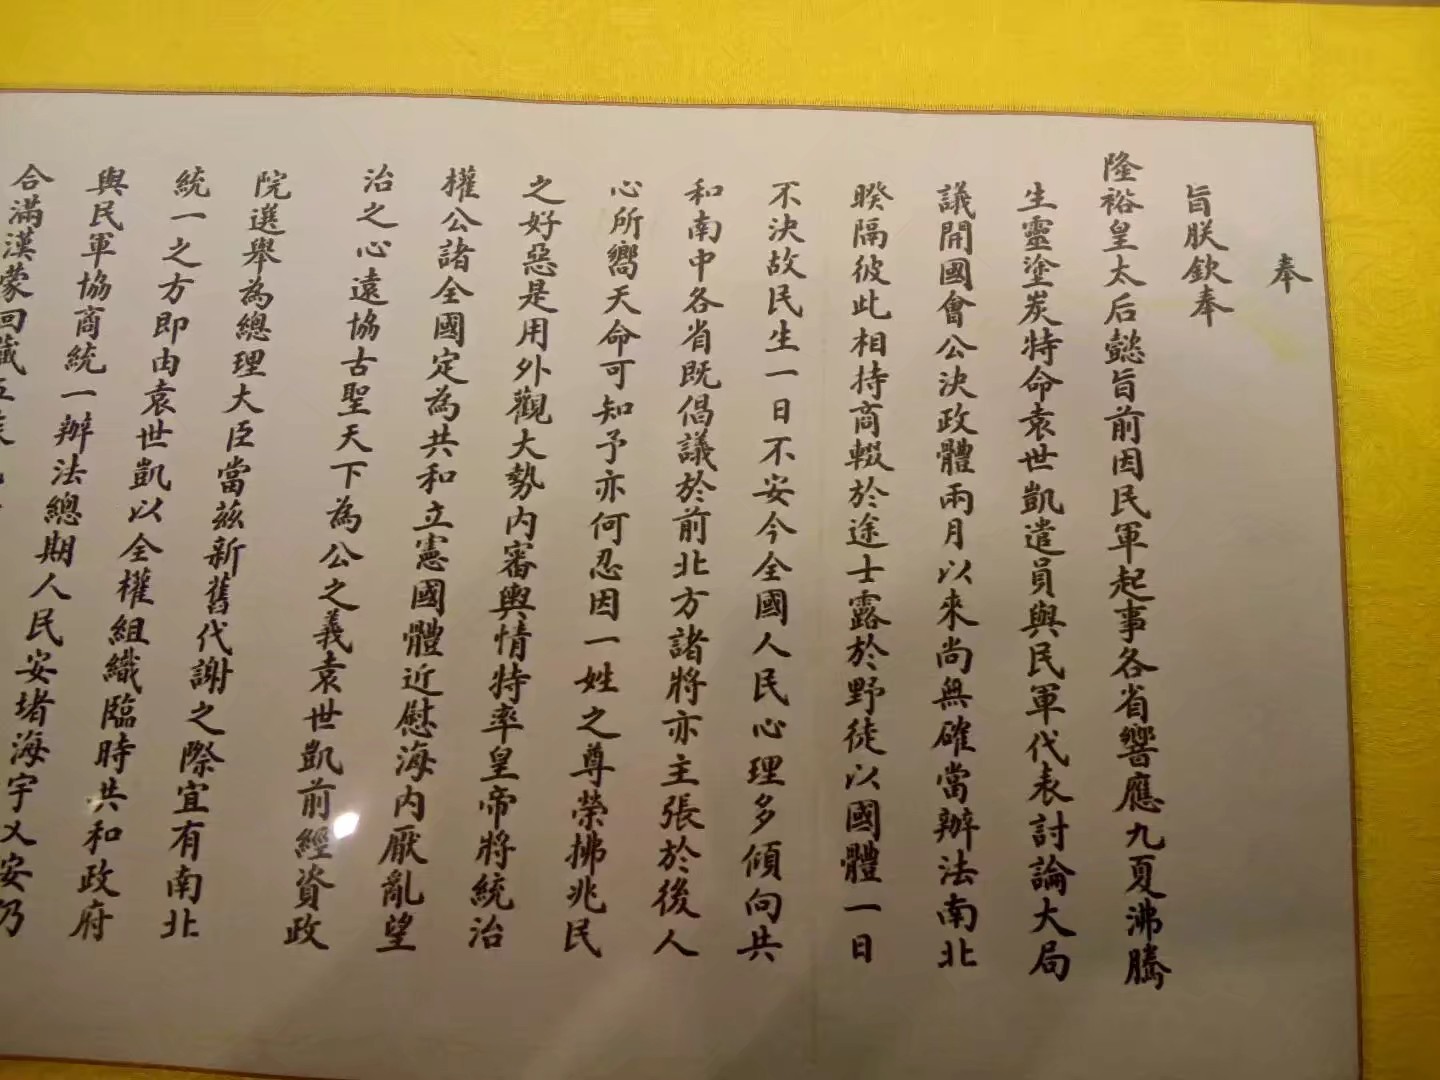 奉
旨朕欽奉
隆裕皇太后懿旨前因民軍起事各省響應九夏沸騰
生靈塗炭特命袁世凱遣員與民軍代表討論大局
議開國會公決政體兩月以來尚無確當辦法南北
睽隔彼此相持商輟於途士露於野徒以國體一日
不決故民生一日不安今全國人民心理多傾向共
和南中各省既倡議於前北方諸將亦主張於後人
心所嚮天命可知予亦何忍因一姓之尊榮拂兆民
之好惡是用外觀大勢內審輿情特率皇帝將統治
權公諸全國定為共和立憲國體近慰海內厭亂望
治之心遠協古聖天下為公之義袁世凱前經資政
院選舉為總理大臣當茲新舊代謝之際宜有南北
統一之方即由袁世凱以全權組織臨時共和政府
與民軍協商統一辦法總期人民安堵海宇乂安仍
合滿漢蒙回藏五族